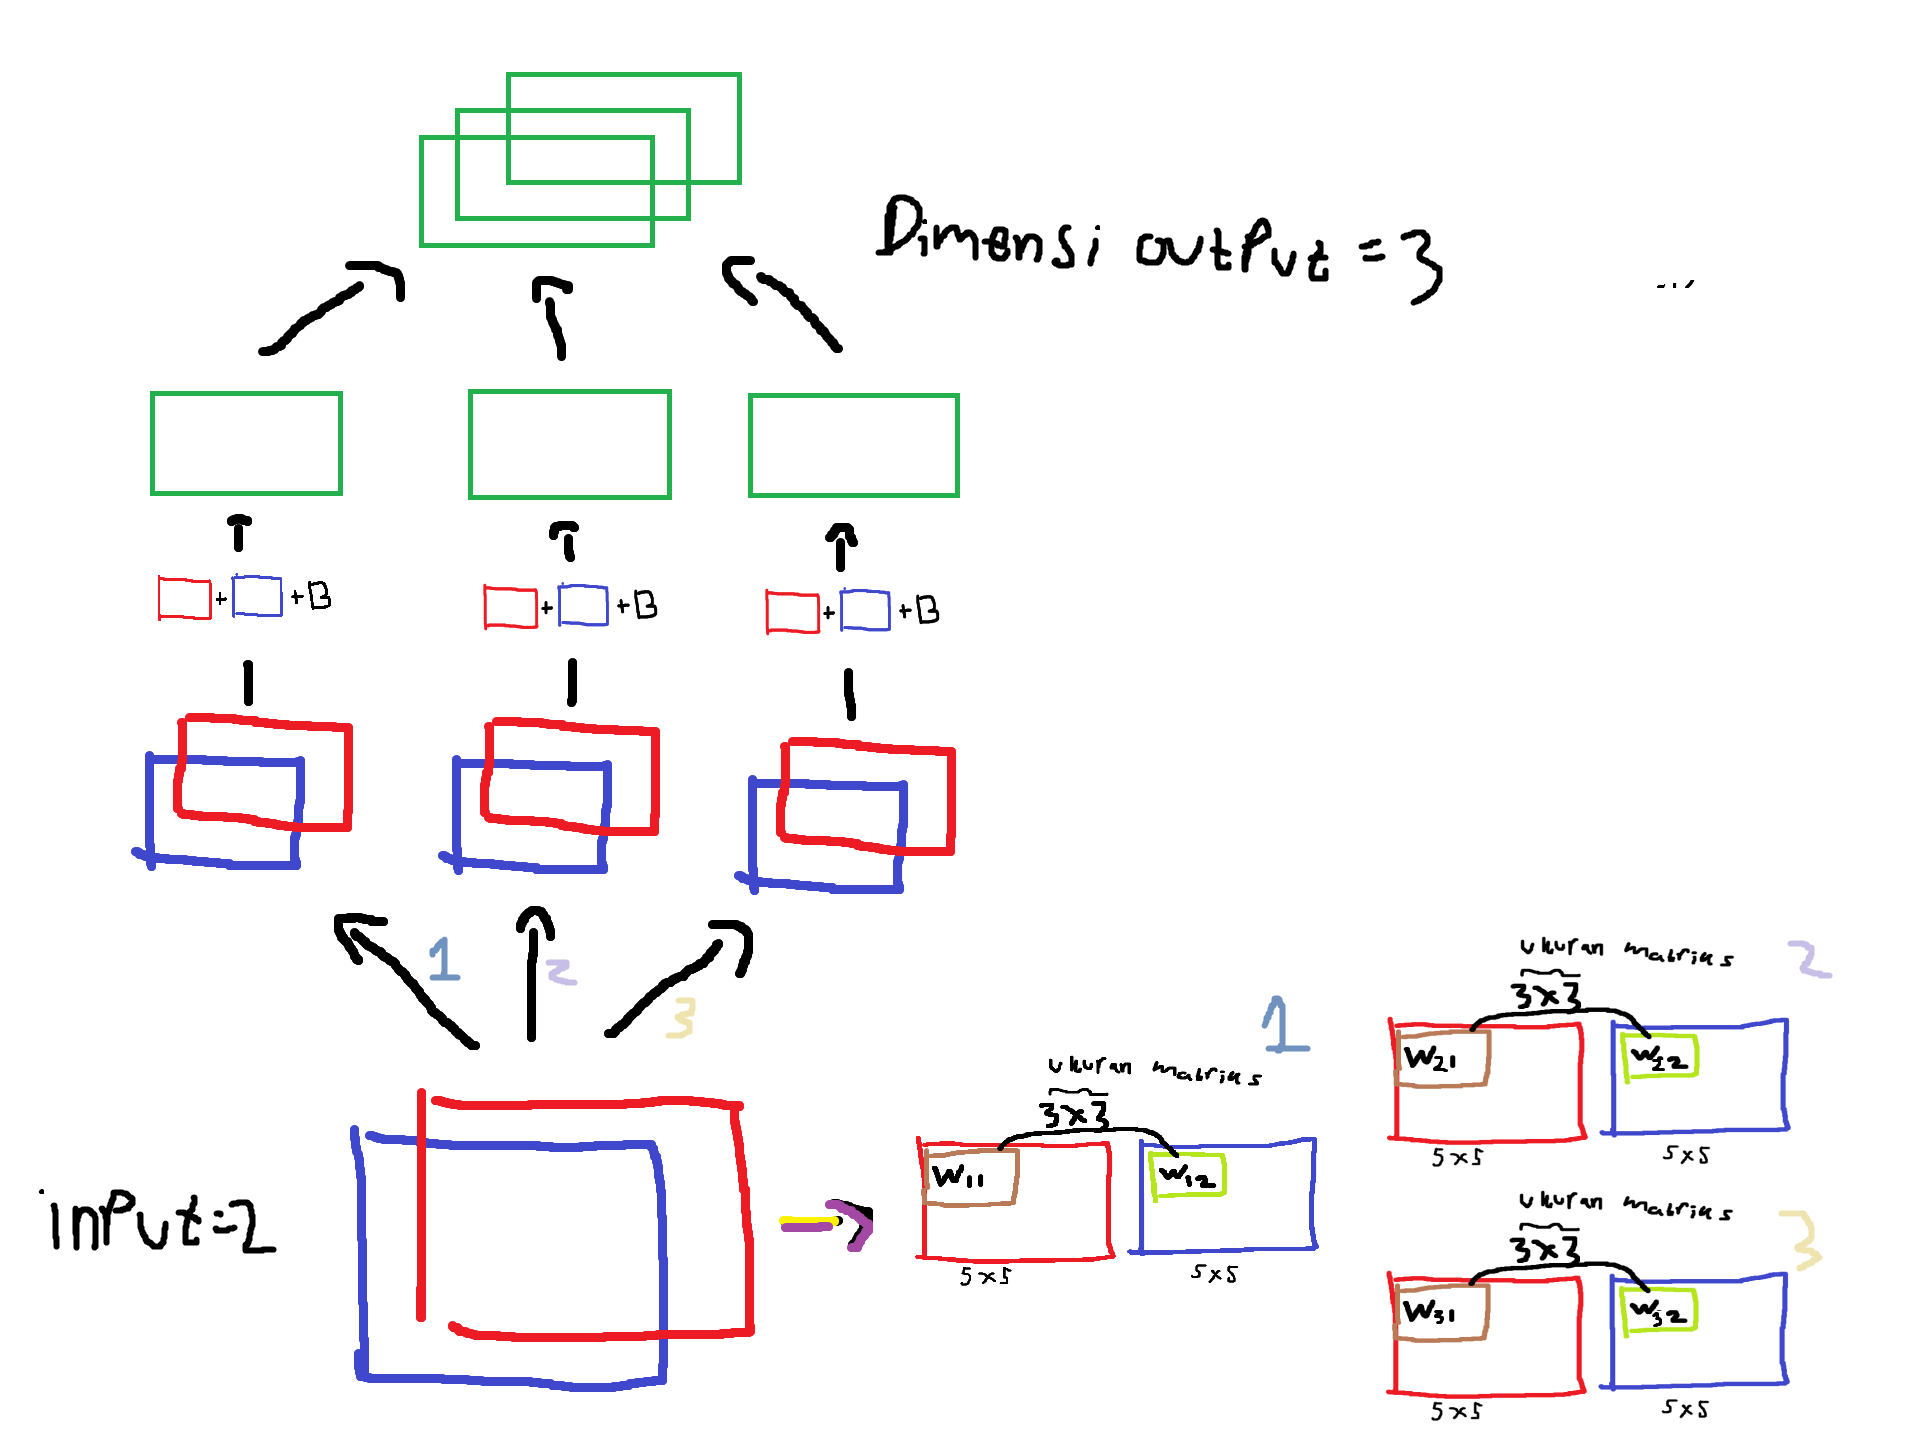 Dimensi output = 3
+ +B
+ +B
+ +B
1
2
3
input=2
1
ukuran matriks
3x3
W11
W12
5x5
5x5
ukuran matriks
2
3x3
W21
W22
5x5
5x5
ukuran matriks
3
3x3
W31
W32
5x5
5x5